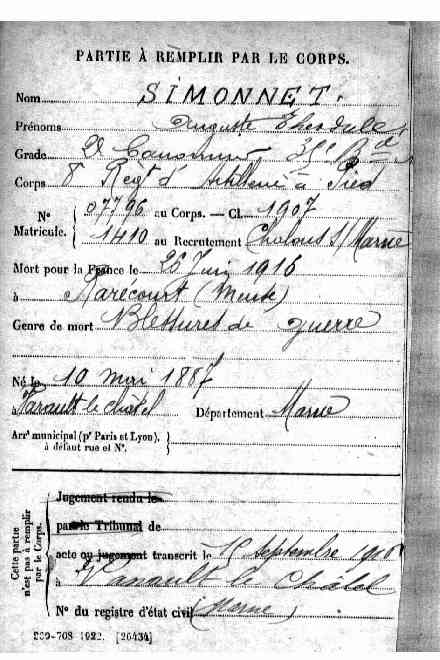 PARTIE À REMPLIR PAR LE CORPS.
Nom SIMONNET.
Prénoms Auguste
Grade 2e Canonnier
Corps 8 Regt d' Artillerie à Pied
N° Matricule. 07796 au Corps. — Cl. 1907
1410 au Recrutement Chalons s/Marne
Mort pour la France le 26 Juin 1916
à (Meuse)
Genre de mort Blessures de guerre
Né le 10 mai 1887
à Vanault le châtel Département Marne
Arrt municipal (pr Paris et Lyon),
à défaut rue et N°.
Cette partie n'est pas à remplir par le Corps.
Jugement rendu le
par le Tribunal de
acte ou jugement transcrit le 15 septembre 1916
à Vanault le Châtel
N° du registre d'état civil (Marne)
269-708 1922. [26434]